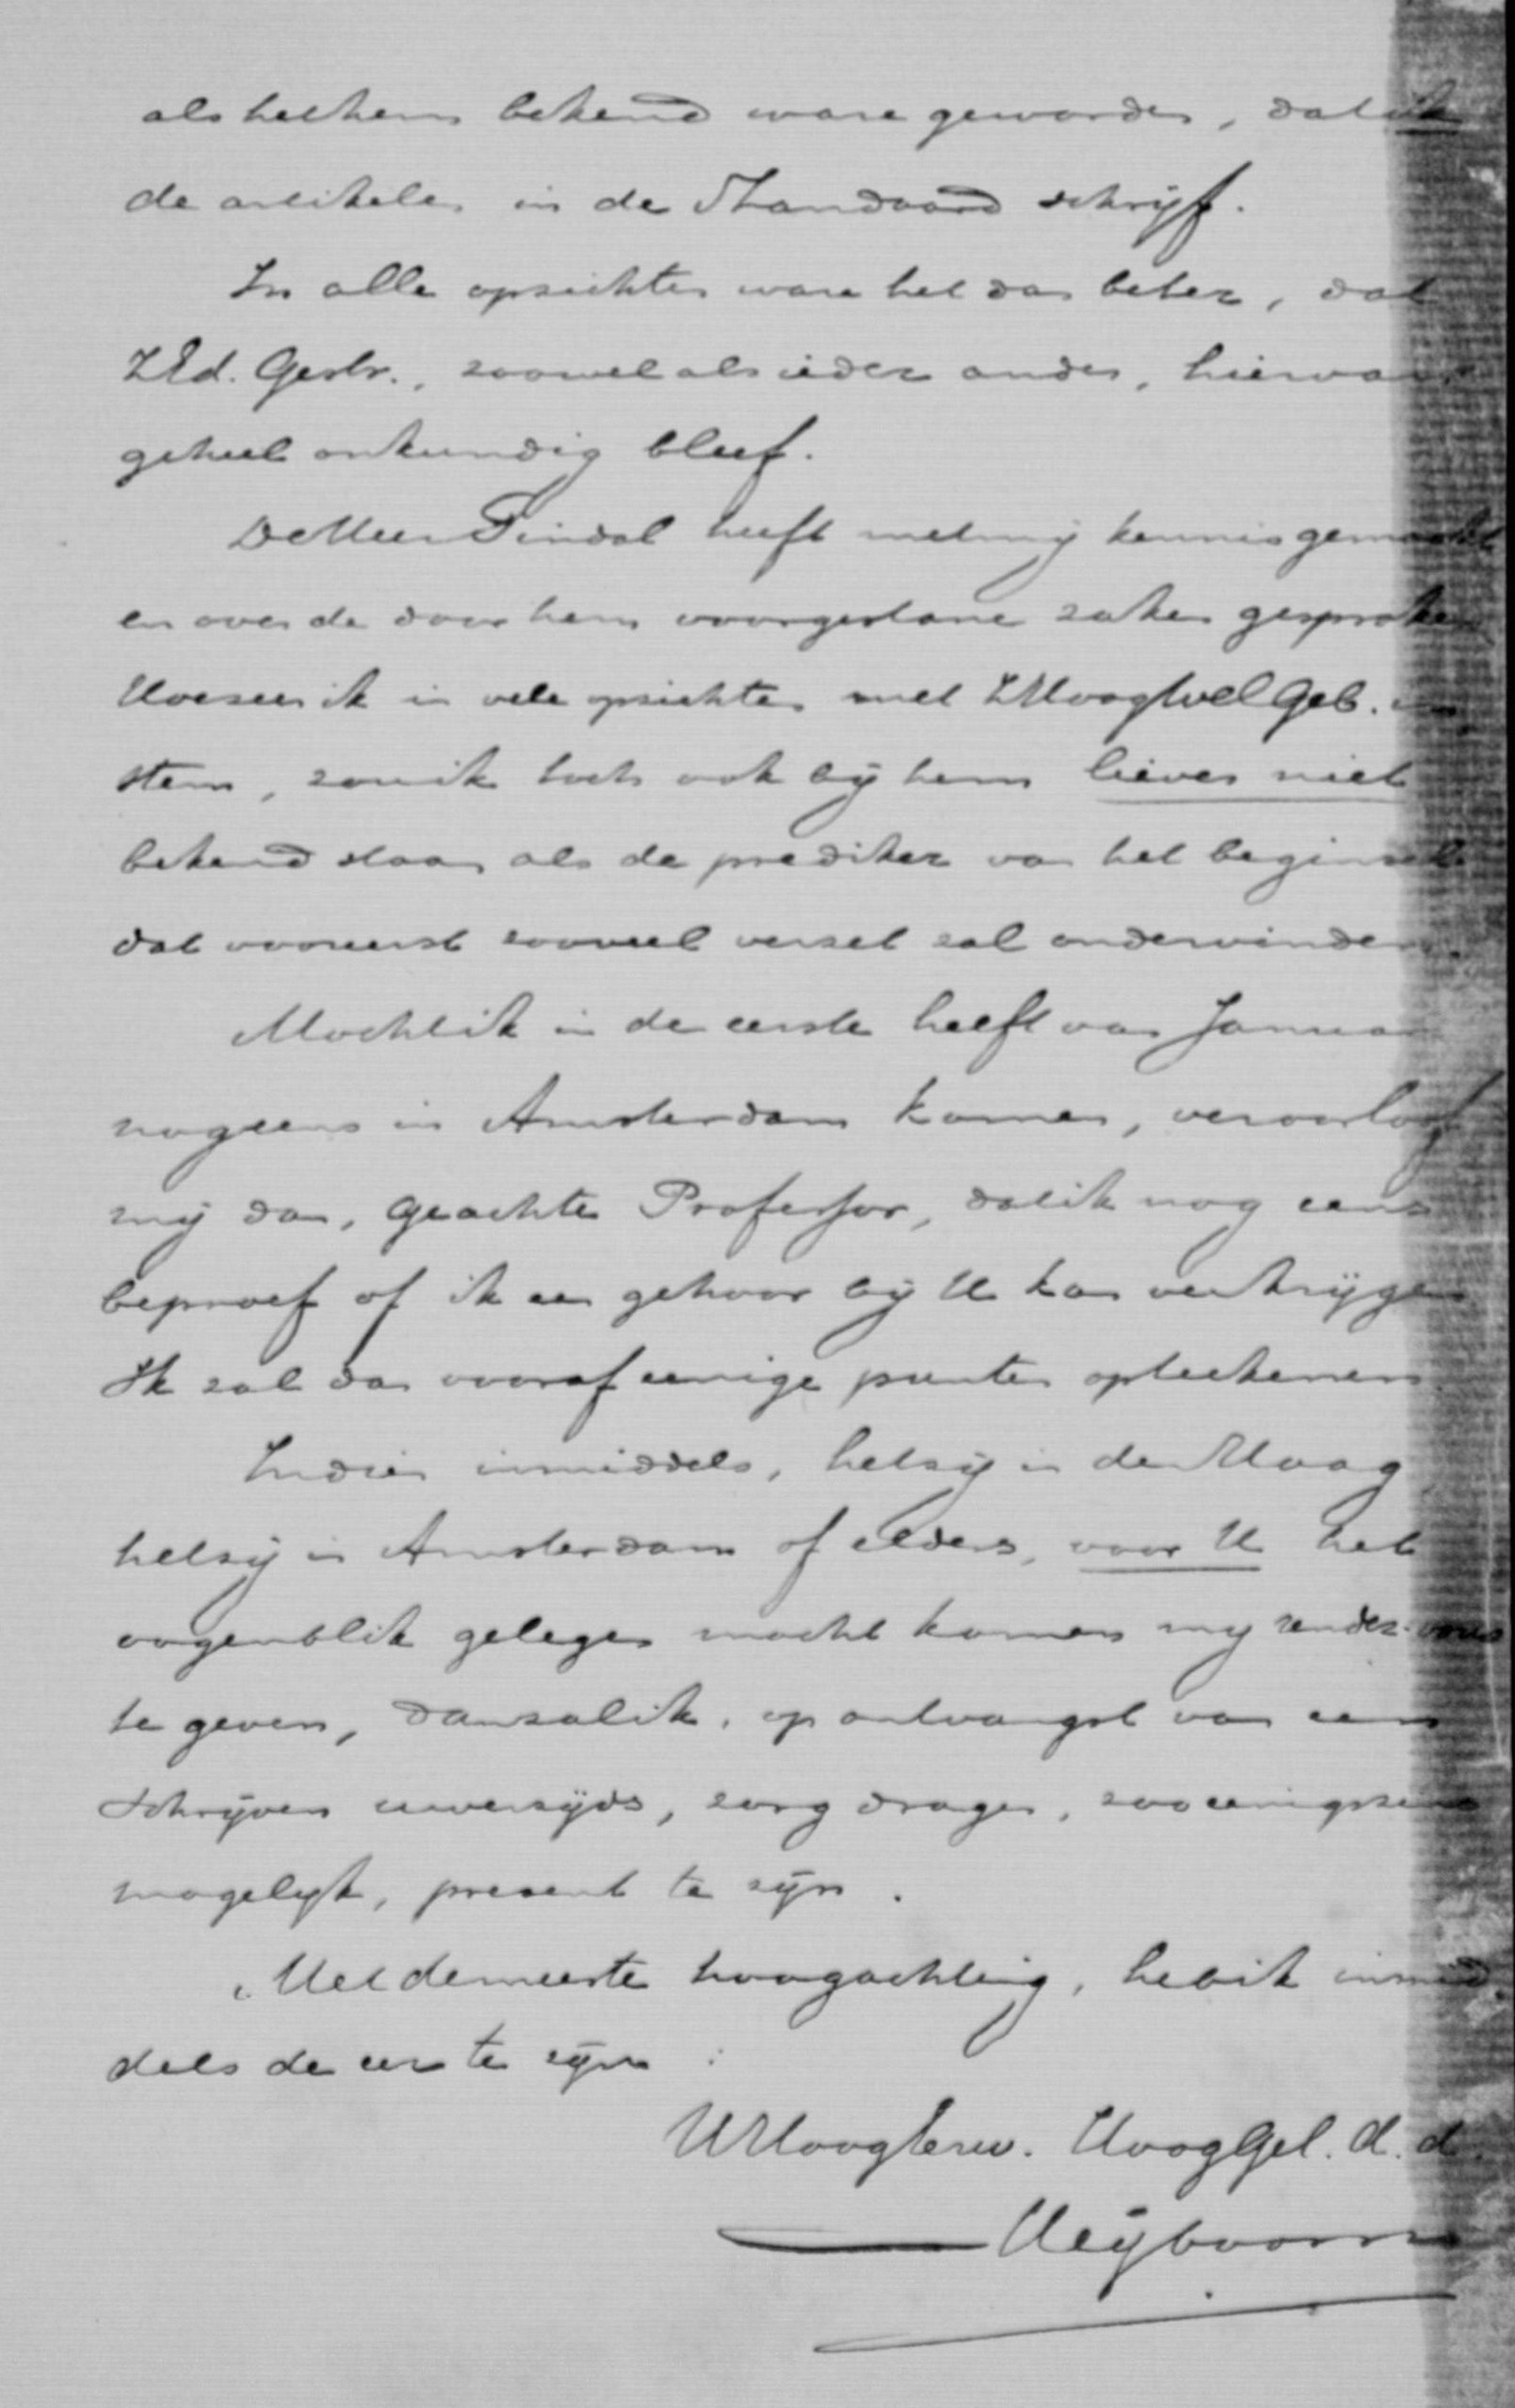 als het hem bekend ware geworden, dat ik
de artikelen in de Standaard schrijf.
In alle opzichten ware het dan beter, dat
ZEd. Gestr., zoowel als ieder ander, hiervan
geheel onkundig bleef.
De Heer Tindal heeft met mij kennis gemaakt
en over de door hem voorgestane zaken gesproken
Hoezeer ik in vele opzichten met ZHoogWelGeb.
stem, zou ik toch ook bij hem liever niet
bekend staan als de prediker van het beginsel
dat vooreerst zooveel verzet zal ondervinden.
Mocht ik in de eerste helft van Januari
nog eens in Amsterdam komen, veroorloof
mij dan, geachte Professor, dat ik nog eens
beproef of ik een gehoor bij U kan verkrijgen
Ik zal dan vooraf eenige punten opteekenen
Indien inmiddels, hetzij in den Haag
hetzij in Amsterdam of elders, voor U het
oogenblik gelegen mocht komen mij rendez-vous
te geven, dan zal ik, op ontvangst van een
schrijven uwerzijds, zorg dragen, zoo eenigszins
mogelijk, present te zijn.
Met de meeste hoogachting, heb ik inmid
dels de eer te zijn:
UHoogEerw. HoogGel. d. d.
Heyboom